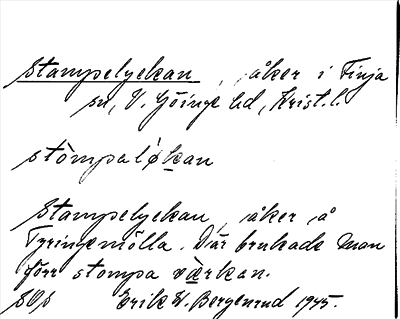 Stampelyckan, åker i Finja
sn, V. Göinge hd, Krist. l.
stòmpalỳkan
Stampelyckan, åker å
Tyringemölla. Där brukade man
förr stompa värkan.
Erik W. Bergenrud 1945.